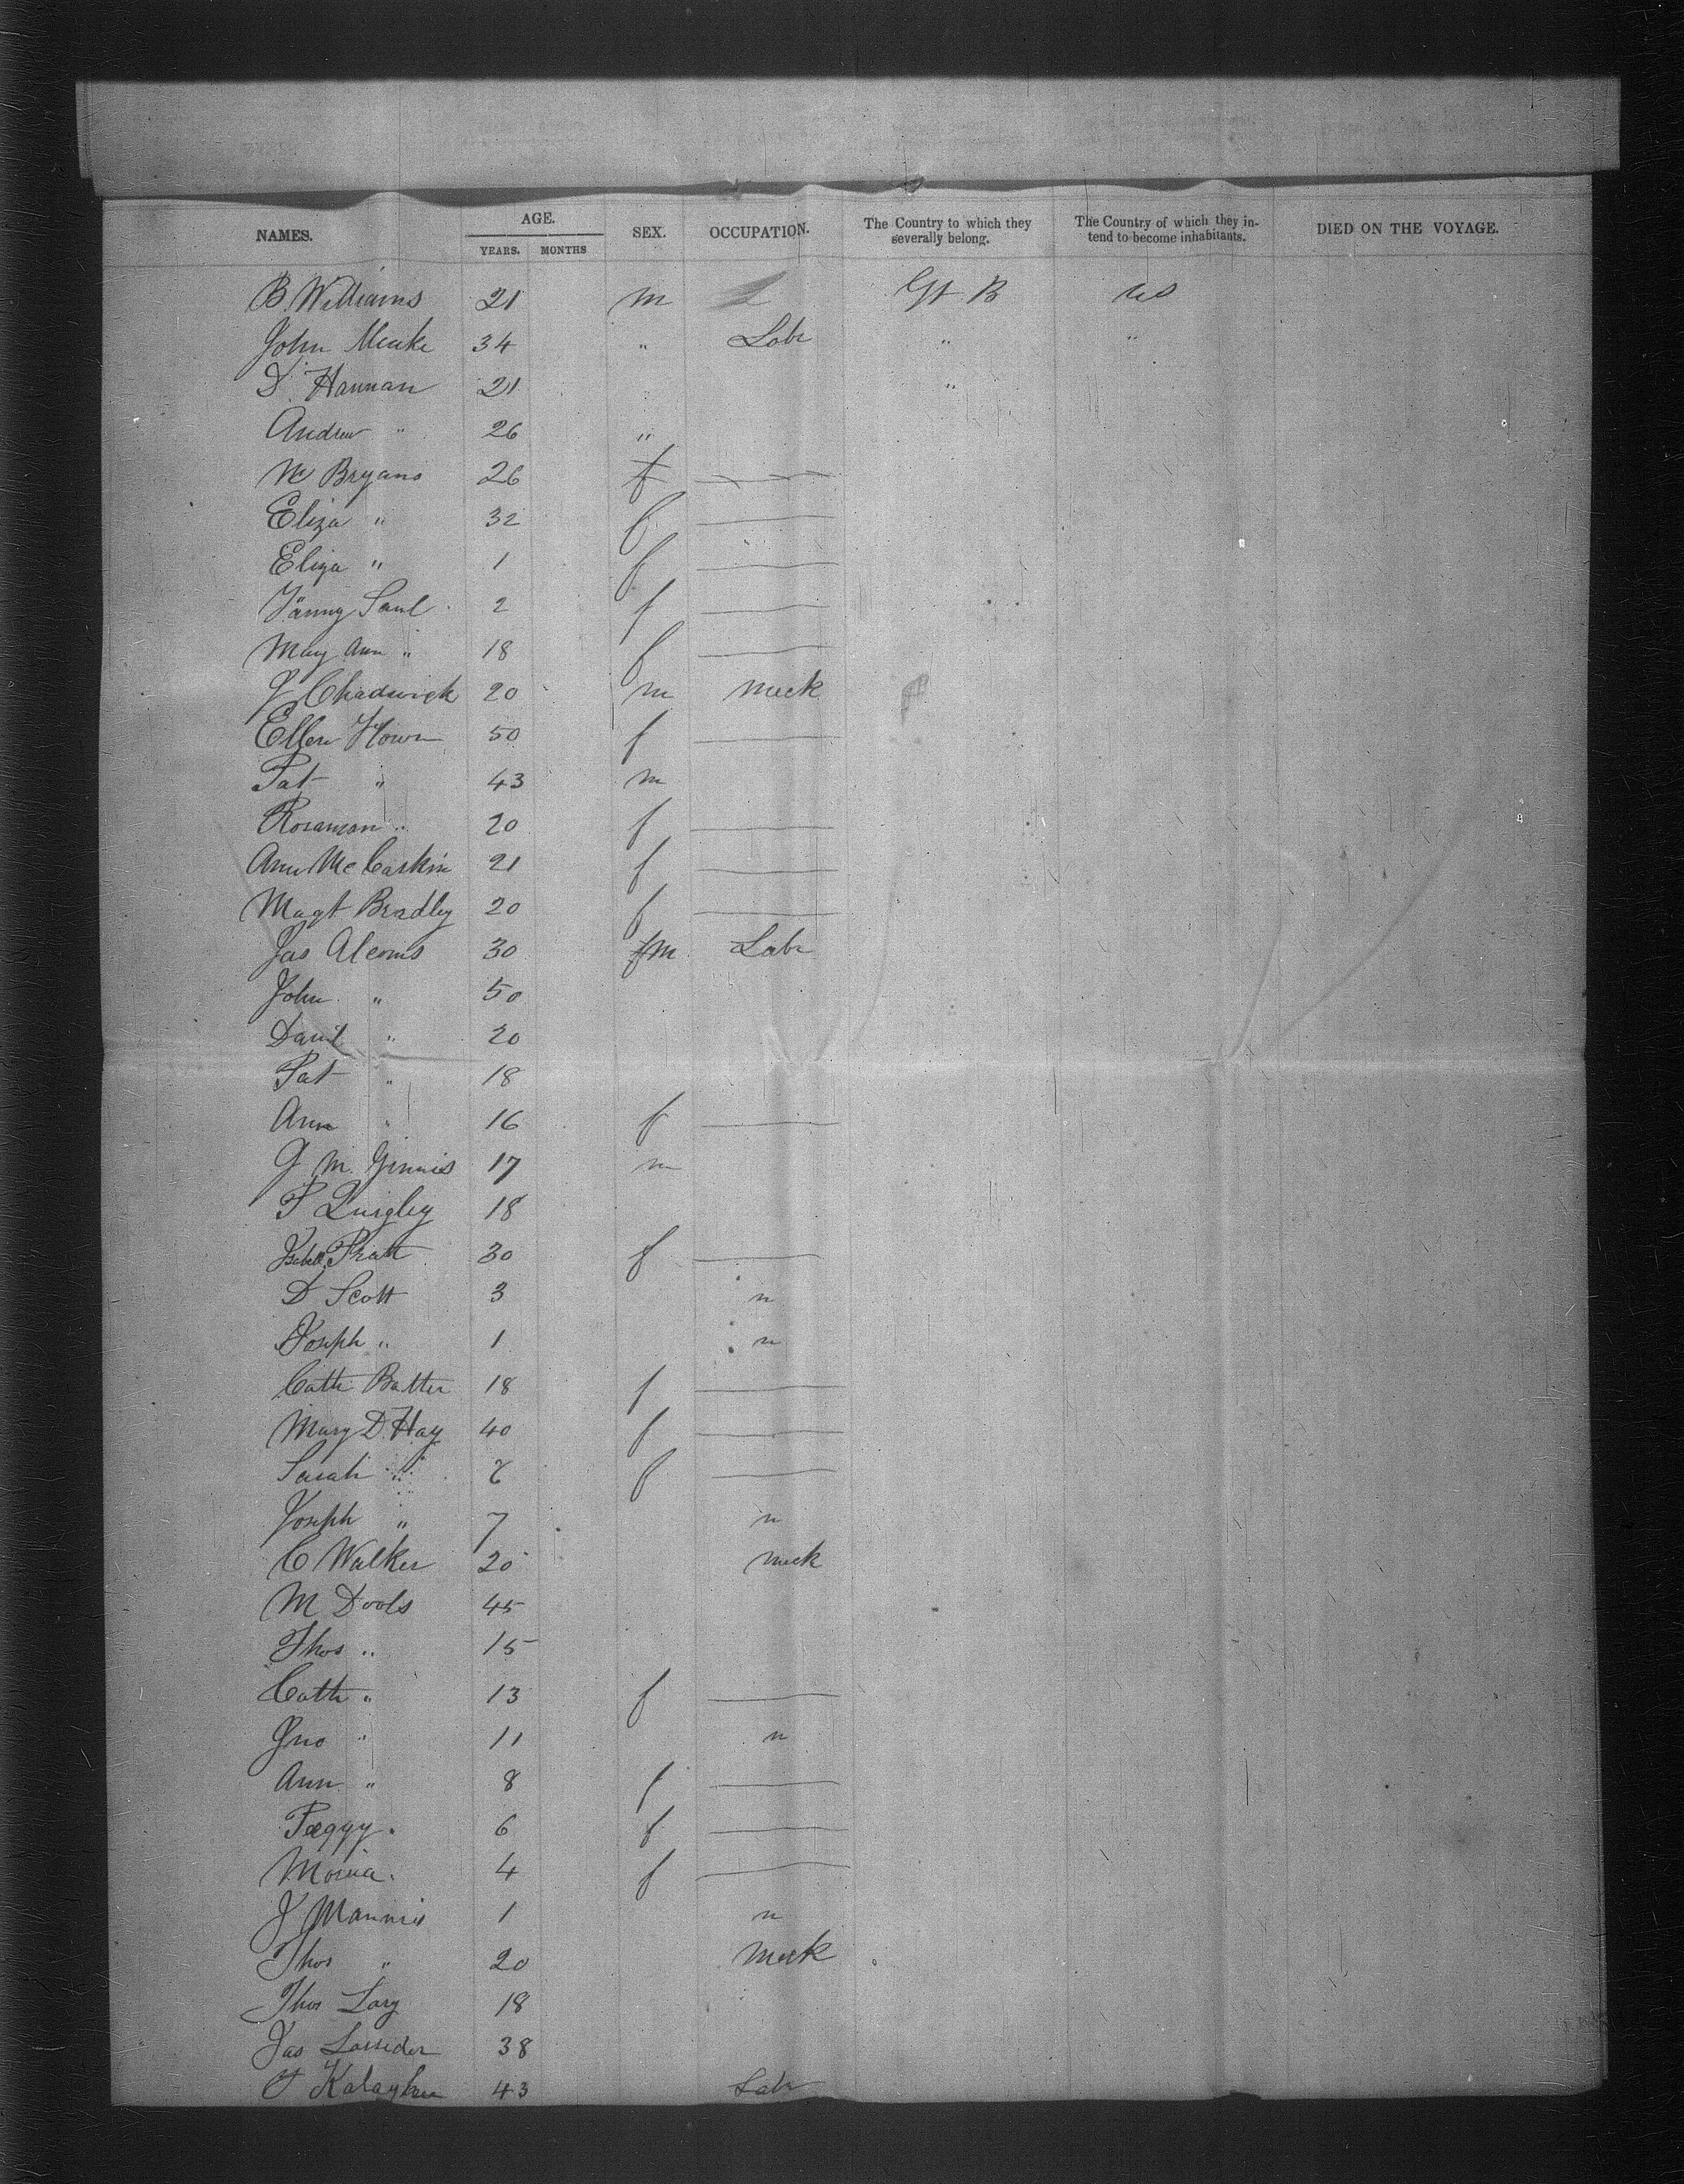 NAMES. AGE. SEX. OCCUPATION. The Country to which they severally belong. The Country of which they intend to become inhabitants. DIED ON THE VOYAGE.
YEARS. MONTHS
B Williams 21 m L Gt B US
John Meake 34 " Labr " "
D. Hannan 21 "
Andrew " 26 "
Bryans 26 f
Eliza " 32 f
Eliza " 1 f
Fanny Saul 2 f
May Ann " 18 f
J Chadwick 20 m Meck
Ellen 50 f
Pat " 43 m
Rosannan " 20 f
Ann McCaskin 21 f
Magt Bradley 20 f
Jas Alcorns 30 fm Labr
John " 50
David " 20
Pat " 18
Ann " 16 f
G M. Ginnis 17 m
P Quigley 18
Isabella Pratt 30 f
D Scott 3 n
Joseph " 1 n
Cath Batter 18 f
Mary D. Hay 40 f
Sarah " f
Joseph " 7 n
C Walker 20 Meck
M Dools 45
Thos " 15
Cath " 13 f
Jno " 11 n
Ann " 8 f
Peggy. 6 f
4 f
J Mannis 1 n
Thos " 20 Meck
Thos Lary 18
Jas 38
43 Labr